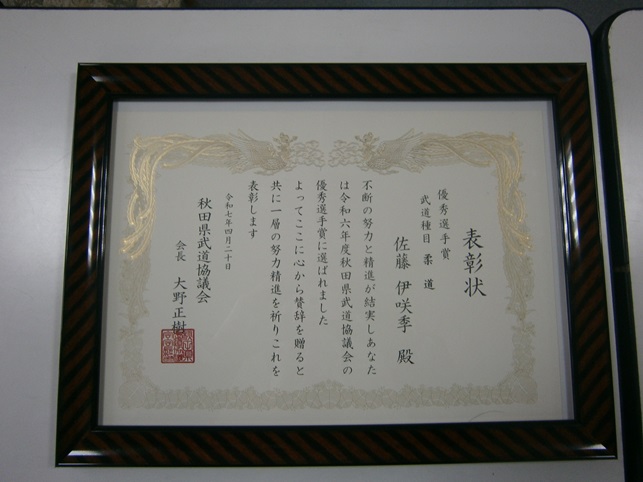 表彰状
優秀選手賞
武道種目 柔道
佐藤 伊咲季 殿
不断の努力と精進が結実しあなた
は令和六年度秋田県武道協議会の
優秀選手賞に選ばれました
よってここに心から賛辞を贈ると
共に一層の努力精進を祈りこれを
表彰します
令和七年四月二十日
秋田県武道協議会
会長 大野正樹